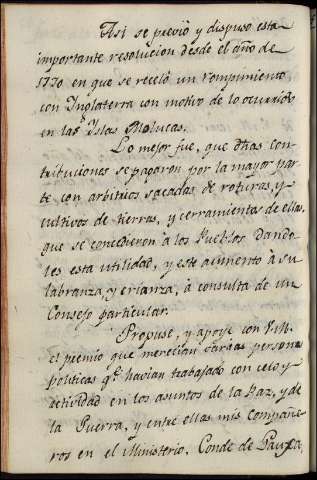 Asi se previò y dispuso esta
importante resolucion desde el año de
1770 en que se recelò un rompimiento
con Inglaterra con motivo de lo ocurrido
en las Yslas Molucas.
Lo mejor fue, que dhas con
tribuciones se pagaron por la mayor par
te con arbitrios sacadas de roturas, y
cultivos de tierras, y cerramientos de ellas,
que se concedieron à los Pueblos dando
les esta utilidad, y este aumento à su
labranza, y crianza, à consulta de un
Consejo particular.
Propuse, y apoyè con V.M.
el premio que merecian varias personas
Politicas qe. havian trabajado con celo y
actividad en los asuntos de la Paz, y de
la Guerra, y entre ellas mis Compañe
ros en el Ministerio, Conde de Gauza,